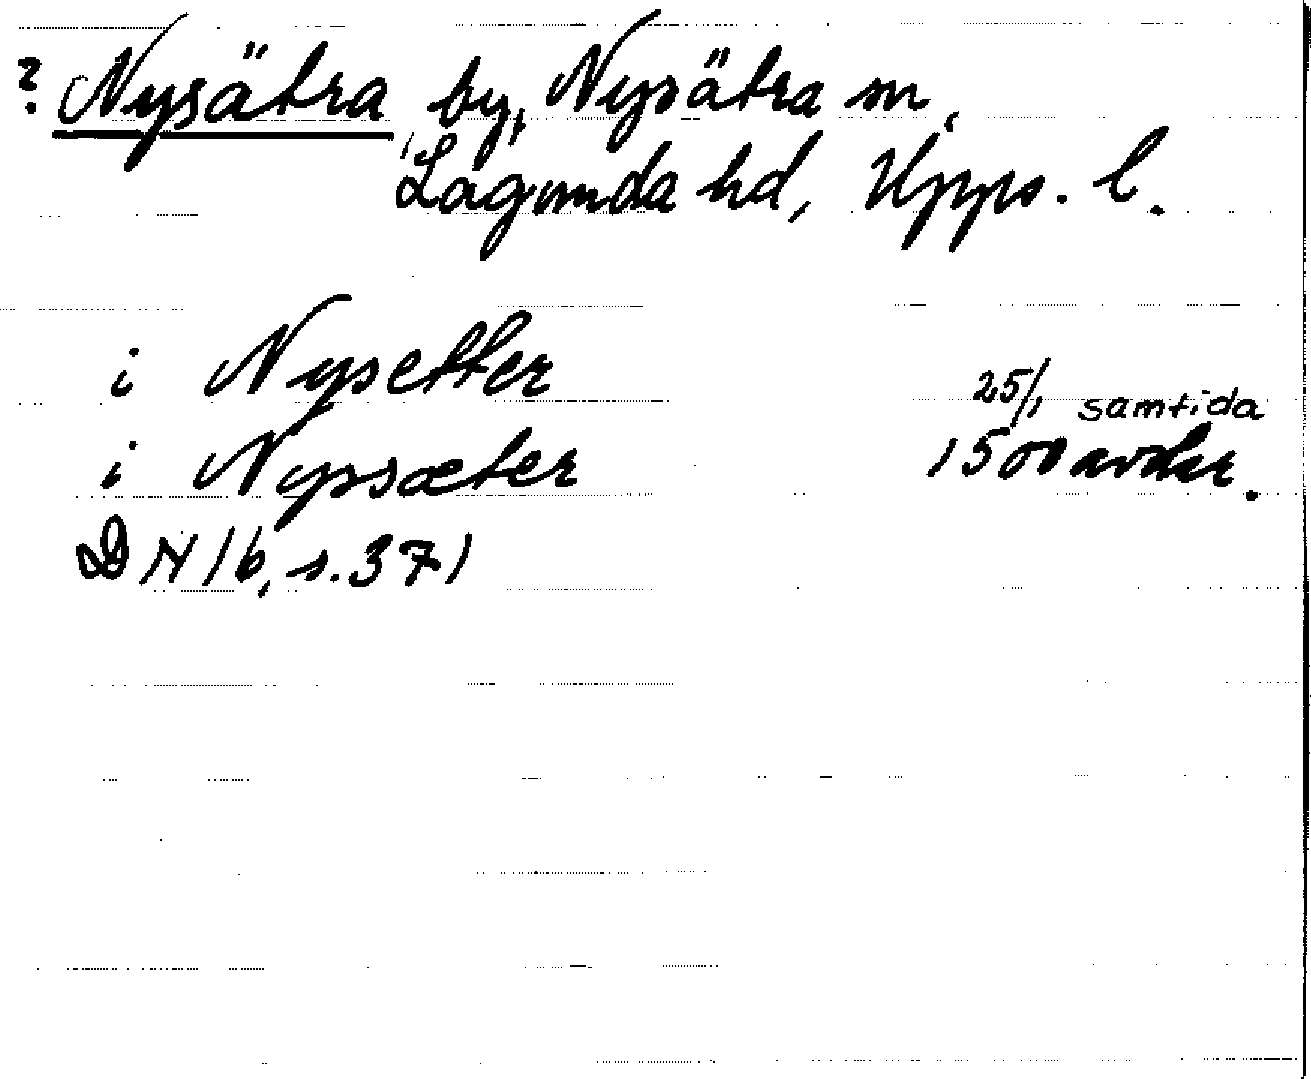 ? Nysätra by, Nysätra sn,
Lagunda hd, Upps. l.
i Nysetter 25/1 samtida
i Nyssæter 1500 avskr.
DN 16, s. 371